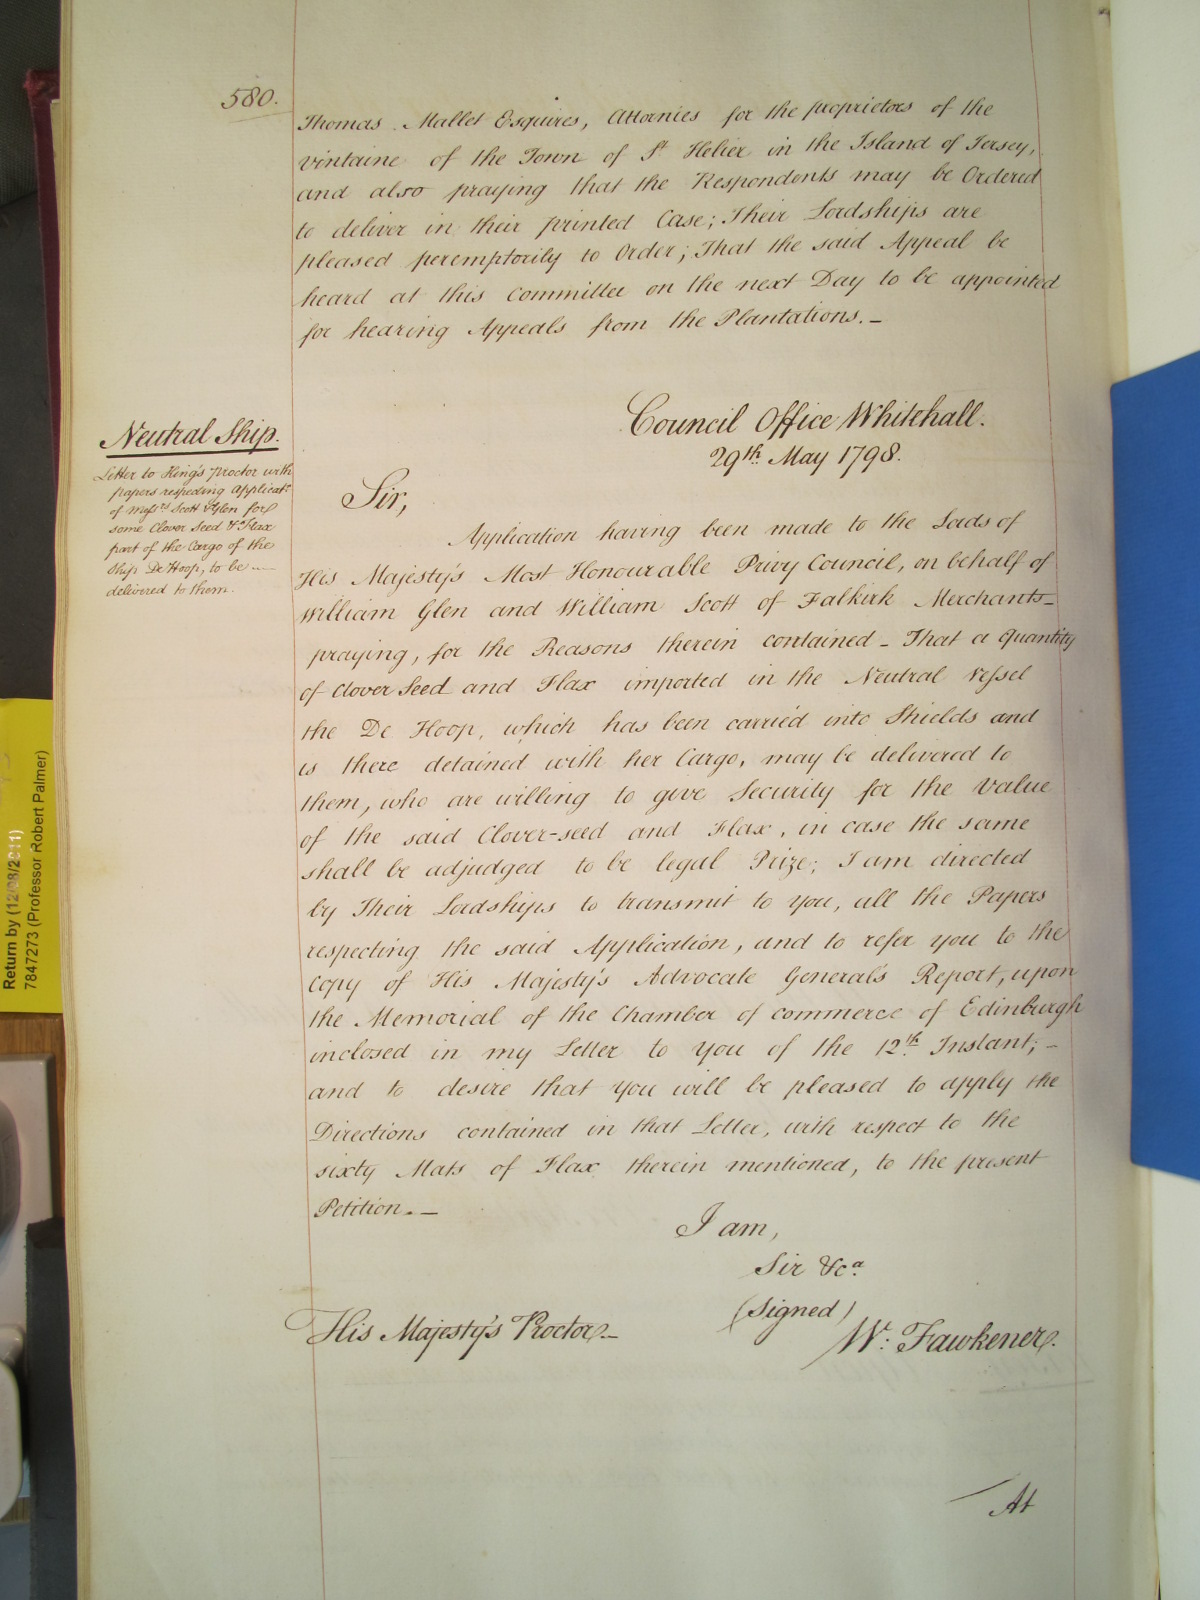 580.
Thomas Mallet Esquires, Attornies for the proprietors of the
vintaine of the Town of St Helier in the Island of Jersey,
and also praying that the Respondents may be Ordered
to deliver in their printed Case; Their Lordships are
pleased peremptorily to Order; That the said Appeal be
heard at this Committee on the next Day to be appointed
for hearing Appeals from the Plantations. _
Council Office Whitehall.
29th May 1798.
Neutral Ship.
Letter to King's proctor with
papers respecting Applicatn
of Messrs Scott & Glen for
some Clover Seed & Flax
part of the Cargo of the
Ship De Hoop, to be
delivered to them.
Sir,
Application having been made to the Lords of
His Majesty's Most Honourable Privy Council, on behalf of
William Glen and William Scott of Falkirk Merchants _
praying, for the Reasons therein contained _ That a quantity
of Clover Seed and Flax imported in the Neutral Vessel
the De Hoop, which has been carried into Shields and
is there detained with her Cargo, may be delivered to
them, who are willing to give Security for the value
of the said Clover-seed and Flax, in case the same
shall be adjudged to be legal Prize; I am directed
by Their Lordships to transmit to you, all the Papers
respecting the said Application, and to refer you to the
Copy of His Majesty's Advocate General's Report, upon
the Memorial of the Chamber of commerce of Edinburgh
inclosed in my Letter to You of the 12th Instant; _
and to desire that you will be pleased to apply the
Directions contained in that Letter, with respect to the
sixty Mats of Flax therein mentioned, to the present
Petition. _
I am,
Sir &ca
(Signed)
His Majesty's Proctor _
W. Fawkener.
At
Return by (12/08/2011)
7847273 (Professor Robert Palmer)